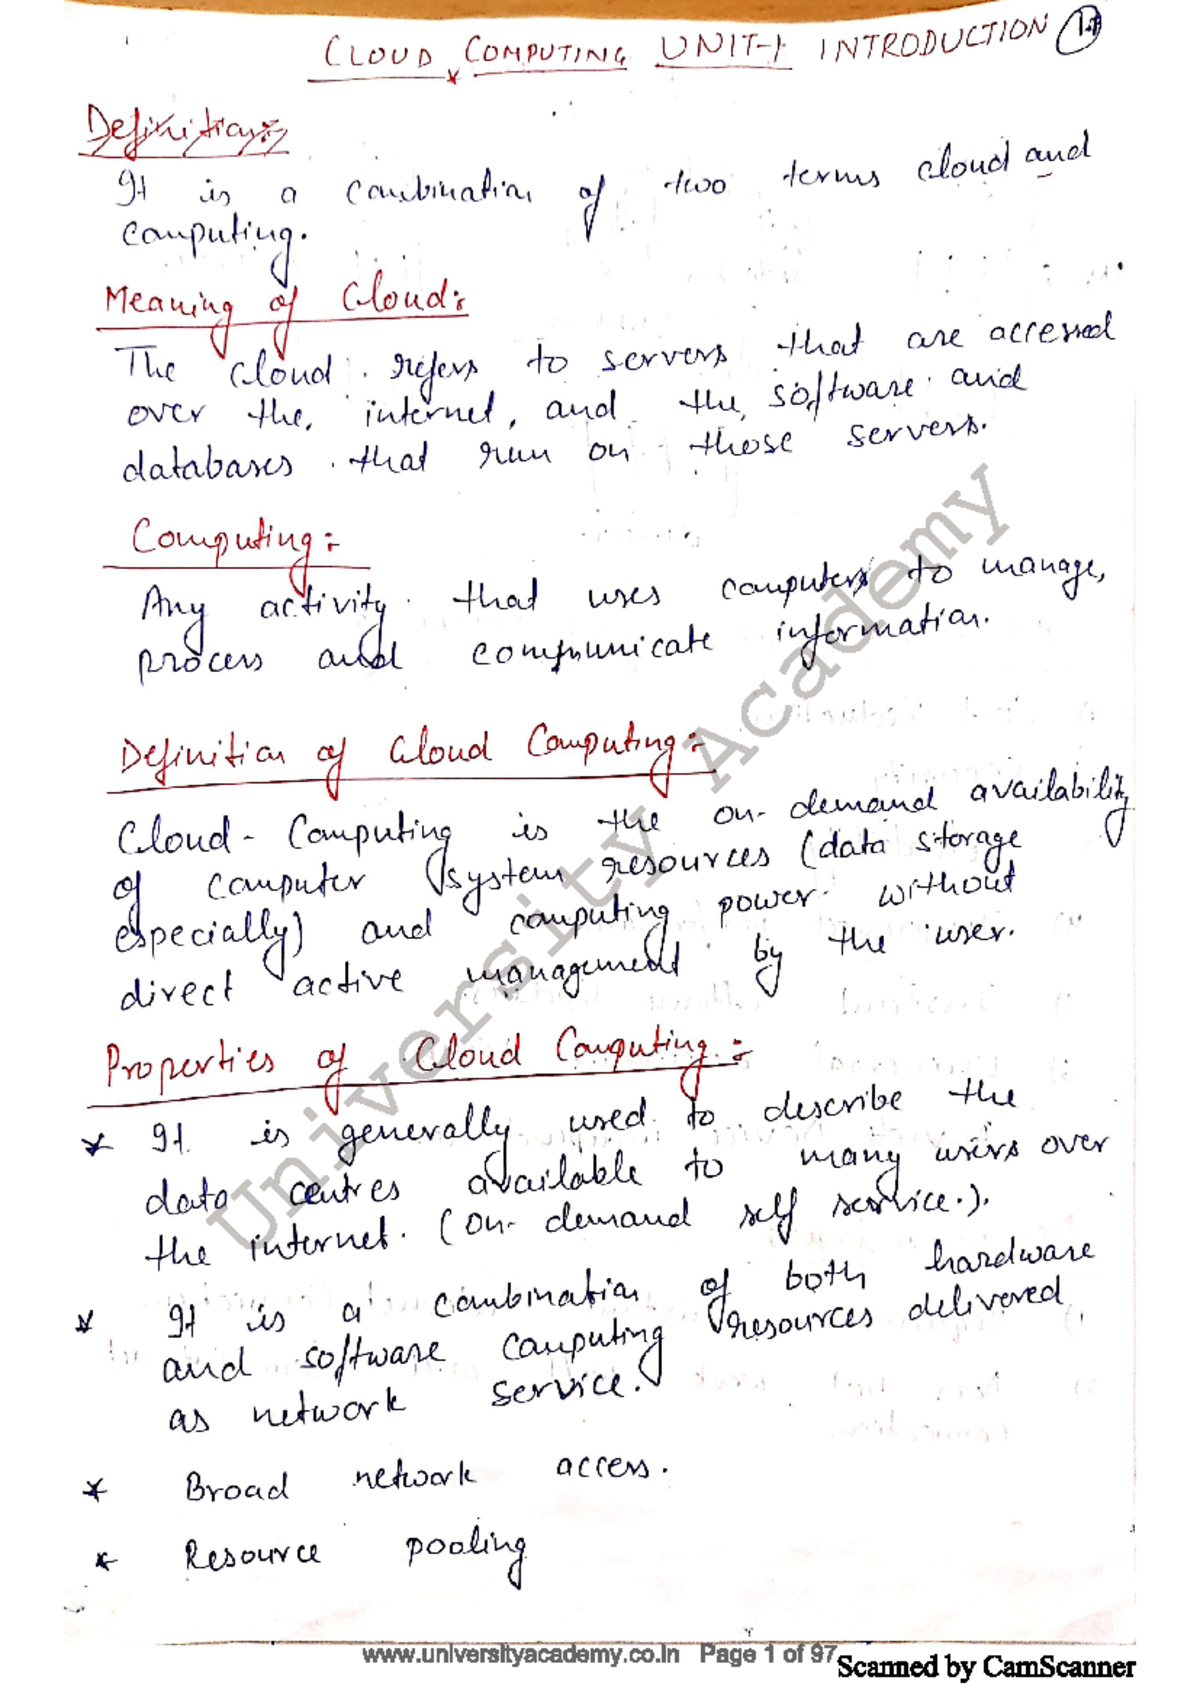 CLOUD COMPUTING UNIT-1 INTRODUCTION
Definition:-
It is a combination of two terms cloud and
computing.
Meaning of Cloud:
The cloud refers to servers that are accessed
over the internet, and the software and
databases that run on those servers.
Computing:-
Any activity that uses computers to manage,
process and communicate information.
Definition of Cloud Computing:-
Cloud-Computing is the on-demand availability
of computer system resources (data storage
especially) and computing power without
direct active management by the user.
Properties of Cloud Computing:-
* It is generally used to describe the
data centres available to many users over
the internet. (on-demand self service.).
* It is a combination of both hardware
and software computing resources delivered
as network service.
* Broad network access.
* Resource pooling
University Academy
www.universityacademy.co.in Page 1 of 97
Scanned by CamScanner